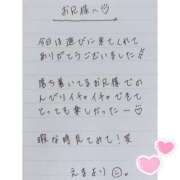 お兄様へ♡
今日は遊びに来てくれて
ありがとうございました!!
落ち着いてるお兄様での
んびりイチャイチャできて
とっても楽しかったー♡
暇な時見てれて!笑
えまより☺